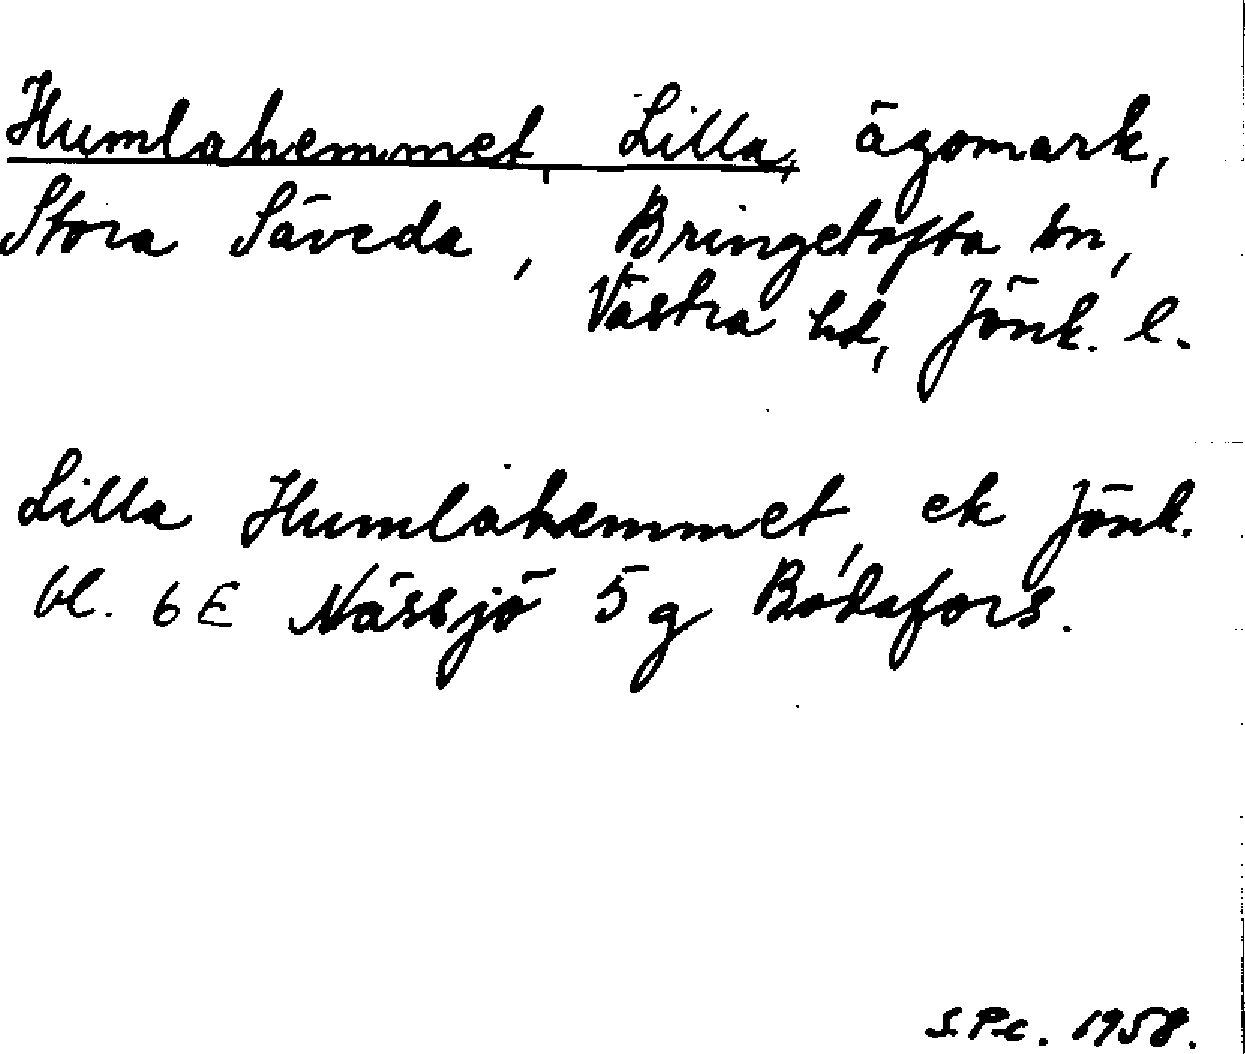 Humlahemmet, Lilla, ägomark,
Stora Säveda, Bringetofta sn,
Västra hd, Jönk. l.
Lilla Humlahemmet, ek Jönk.
bl. 6E Nässjö 5g Bodafors.
S.Pc. 1958.